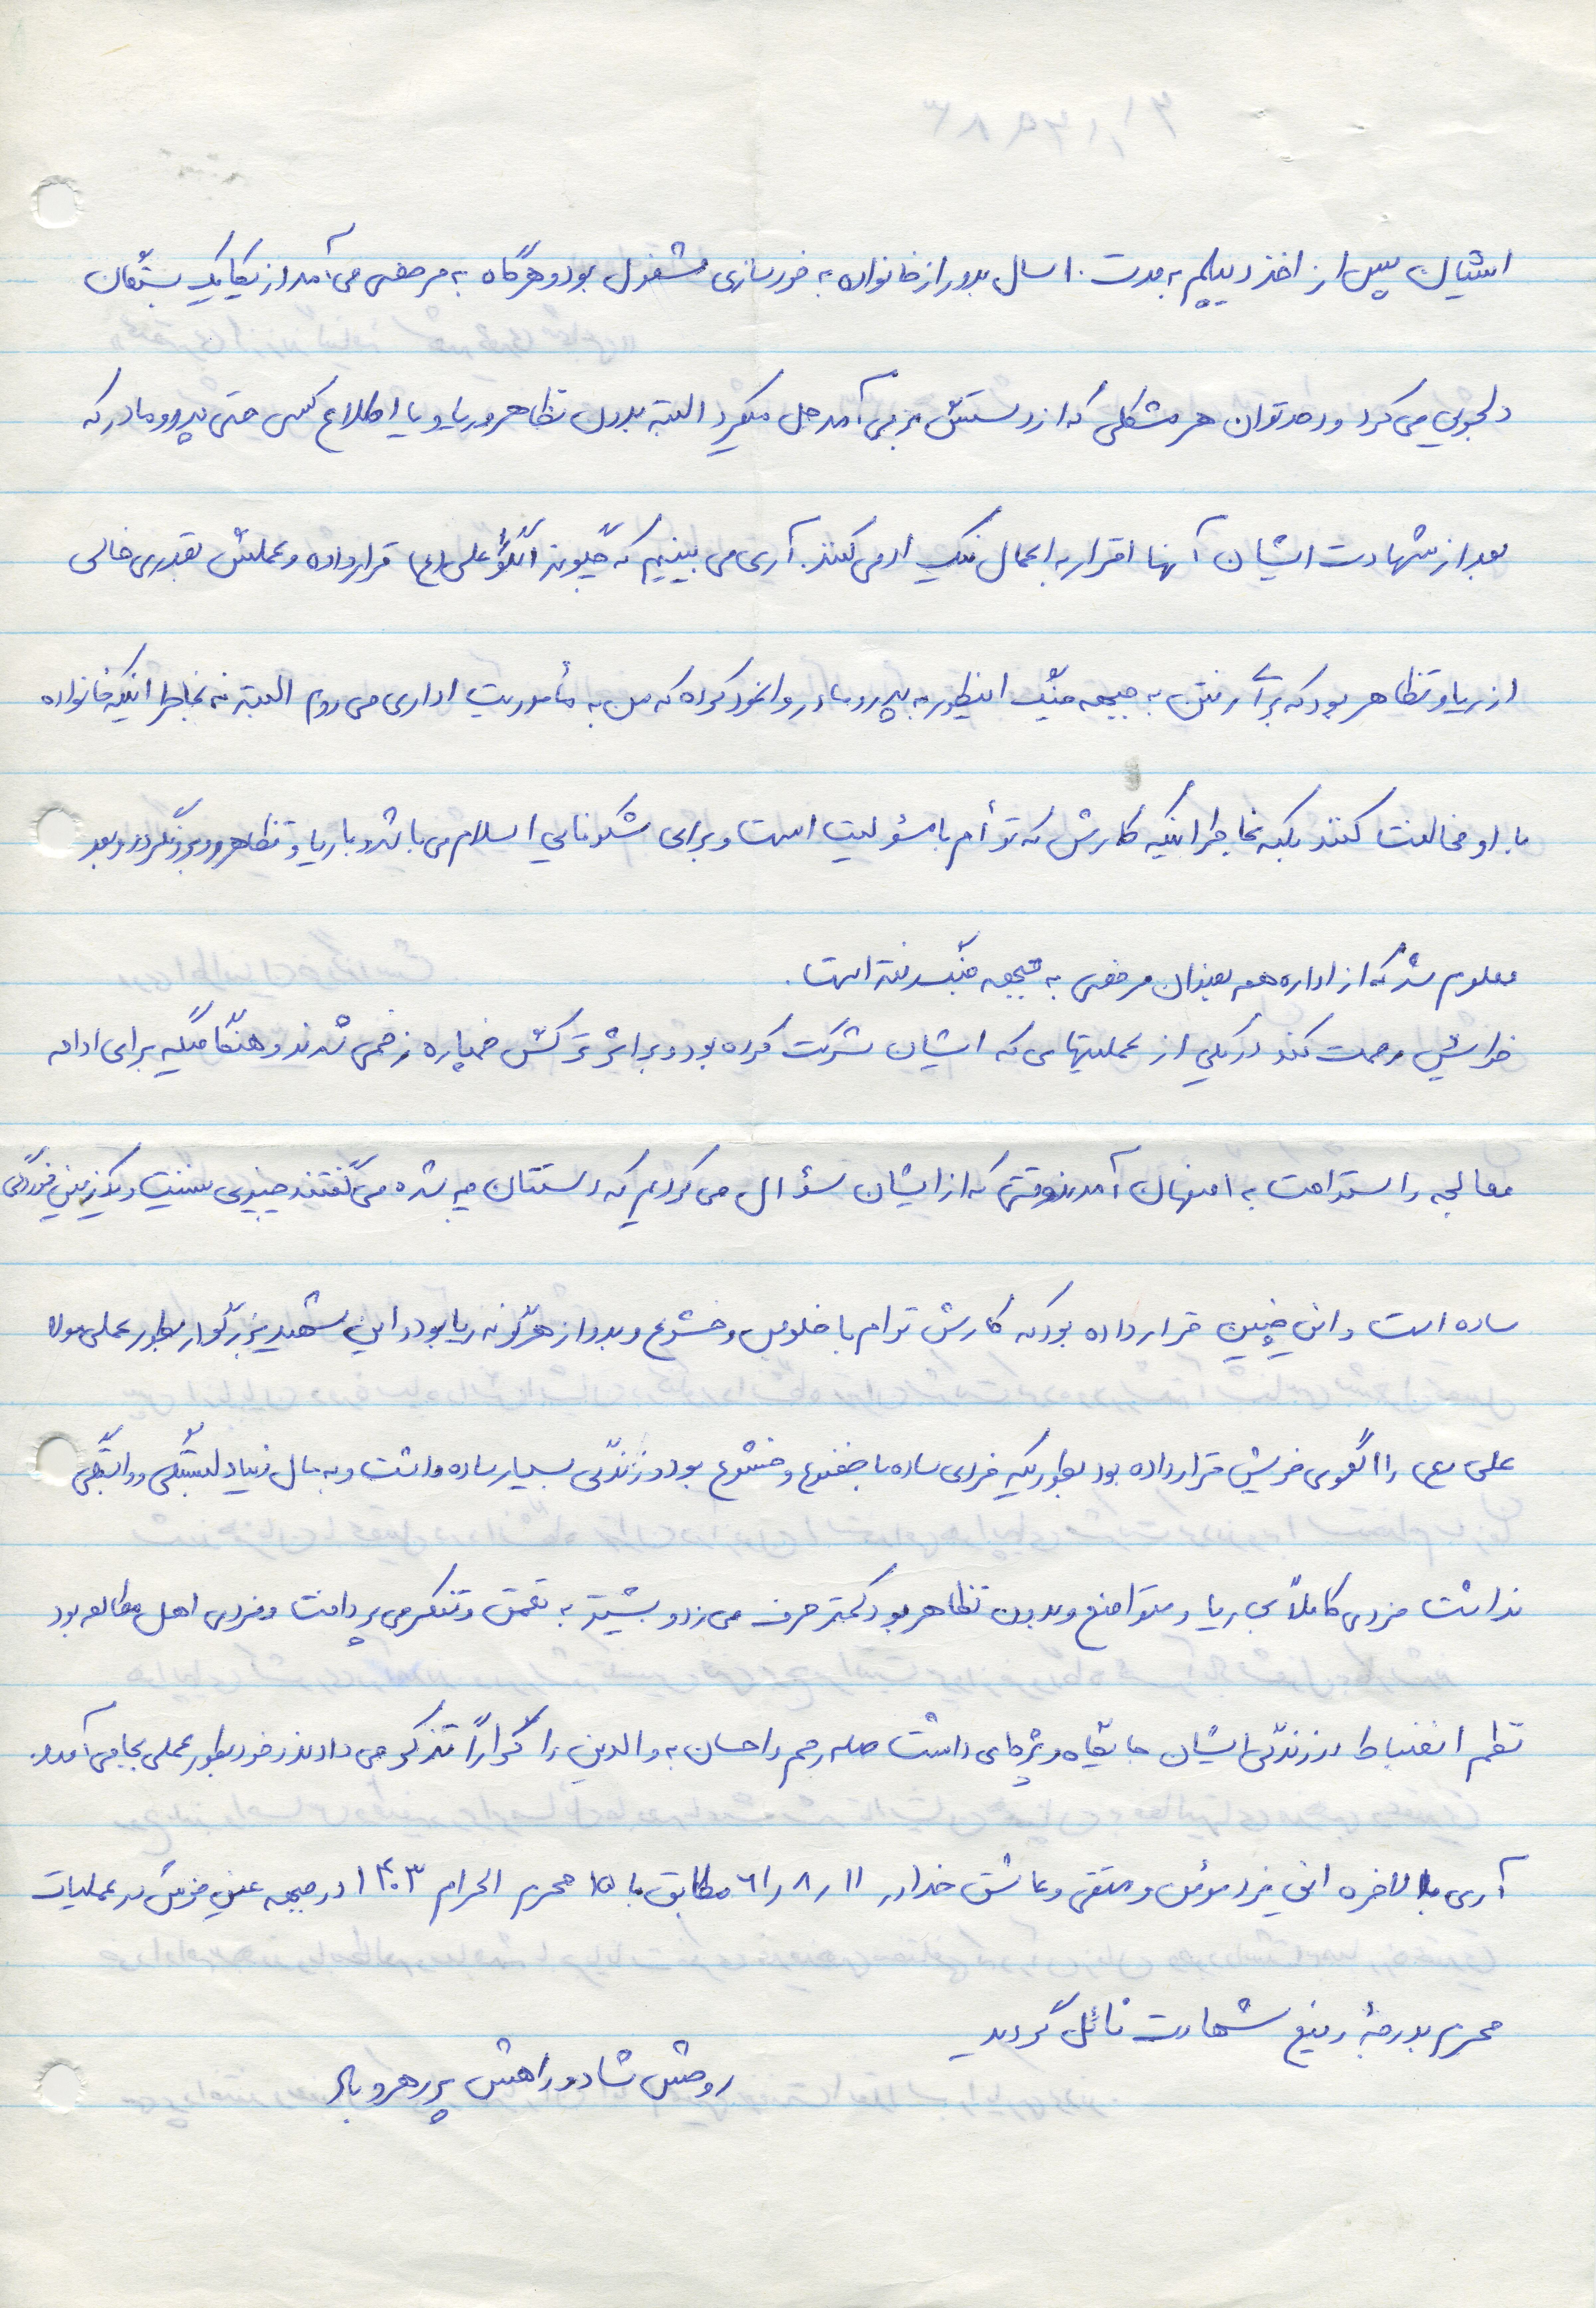 ایشان پس از اخذ دیپلم به مدت ۱۰ سال بدور از خانواده به خودسازی مشغول بود و هرگاه به مرخصی می آمد از یکایک بستگان
دلجویی می کرد و در حد توان هر مشکلی که از دستش بر می آمد حل میکرد البته بدون تظاهر و ریا و یا اطلاع کسی حتی پدر و مادر که
بعد از شهادت ایشان آنها اقرار به اعمال نیک او می کنند. آری می بینیم که چگونه الگو علی (ع) قرار داده و عملش بقدری خالی
از ریا و تظاهر بود که برای رفتن به جبهه جنگ اینطور به پدر و مادر وانمود کرده که من به مأموریت اداری می روم البته نه بخاطر اینکه خانواده
با او مخالفت کنند بلکه بخاطر اینکه کارش که توأم با مسئولیت است و برای شکوفایی اسلام می باشد و با ریا و تظاهر روبرو نگردد و بعد
معلوم شد که از اداره هم بعنوان مرخصی به جبهه جنگ رفته است.
خدایش رحمت کند در یکی از عملیتهایی که ایشان شرکت کرده بود و بر اثر ترکش خمپاره زخمی شدند و هنگامیکه برای ادامه
معالجه و استراحت به اصفهان آمدند وقتی که از ایشان سؤال می کردیم که دستتان چه شده می گفتند چیزی نیست و یک زمین خوردگی
ساده است و این چنین قرار داده بود که کارش توام با خلوص و خشوع و بدور از هرگونه ریا بود و این شهید بزرگوار بطور عملی مولا
علی (ع) را الگوی خویش قرار داده بود بطوریکه فردی ساده با خضوع و خشوع بود و زندگی بسیار ساده داشت و به مال دنیا دلبستگی و وابستگی
نداشت فردی کاملاً بی ریا و متواضع و بدون تظاهر بود کمتر حرف می زد و بیشتر به تعمق و تفکر می پرداخت و فردی اهل مطالعه بود
نظم انضباط در زندگی ایشان جایگاه ویژه ای داشت صله رحم و احسان به والدین را کراراً تذکر می دادند و خود بطور عملی بجا می آمد.
آری بالاخره این فرد مؤمن و متقی و عاشق خدا در ۱۱ ر ۸ ر ۶۱ مطابق با ۱۵ محرم الحرام ۱۴۰۳ در جبهه عین خوش در عملیات
محرم بدرجۀ رفیع شهادت نائل گردید
روحش شاد و راهش پر رهرو باد